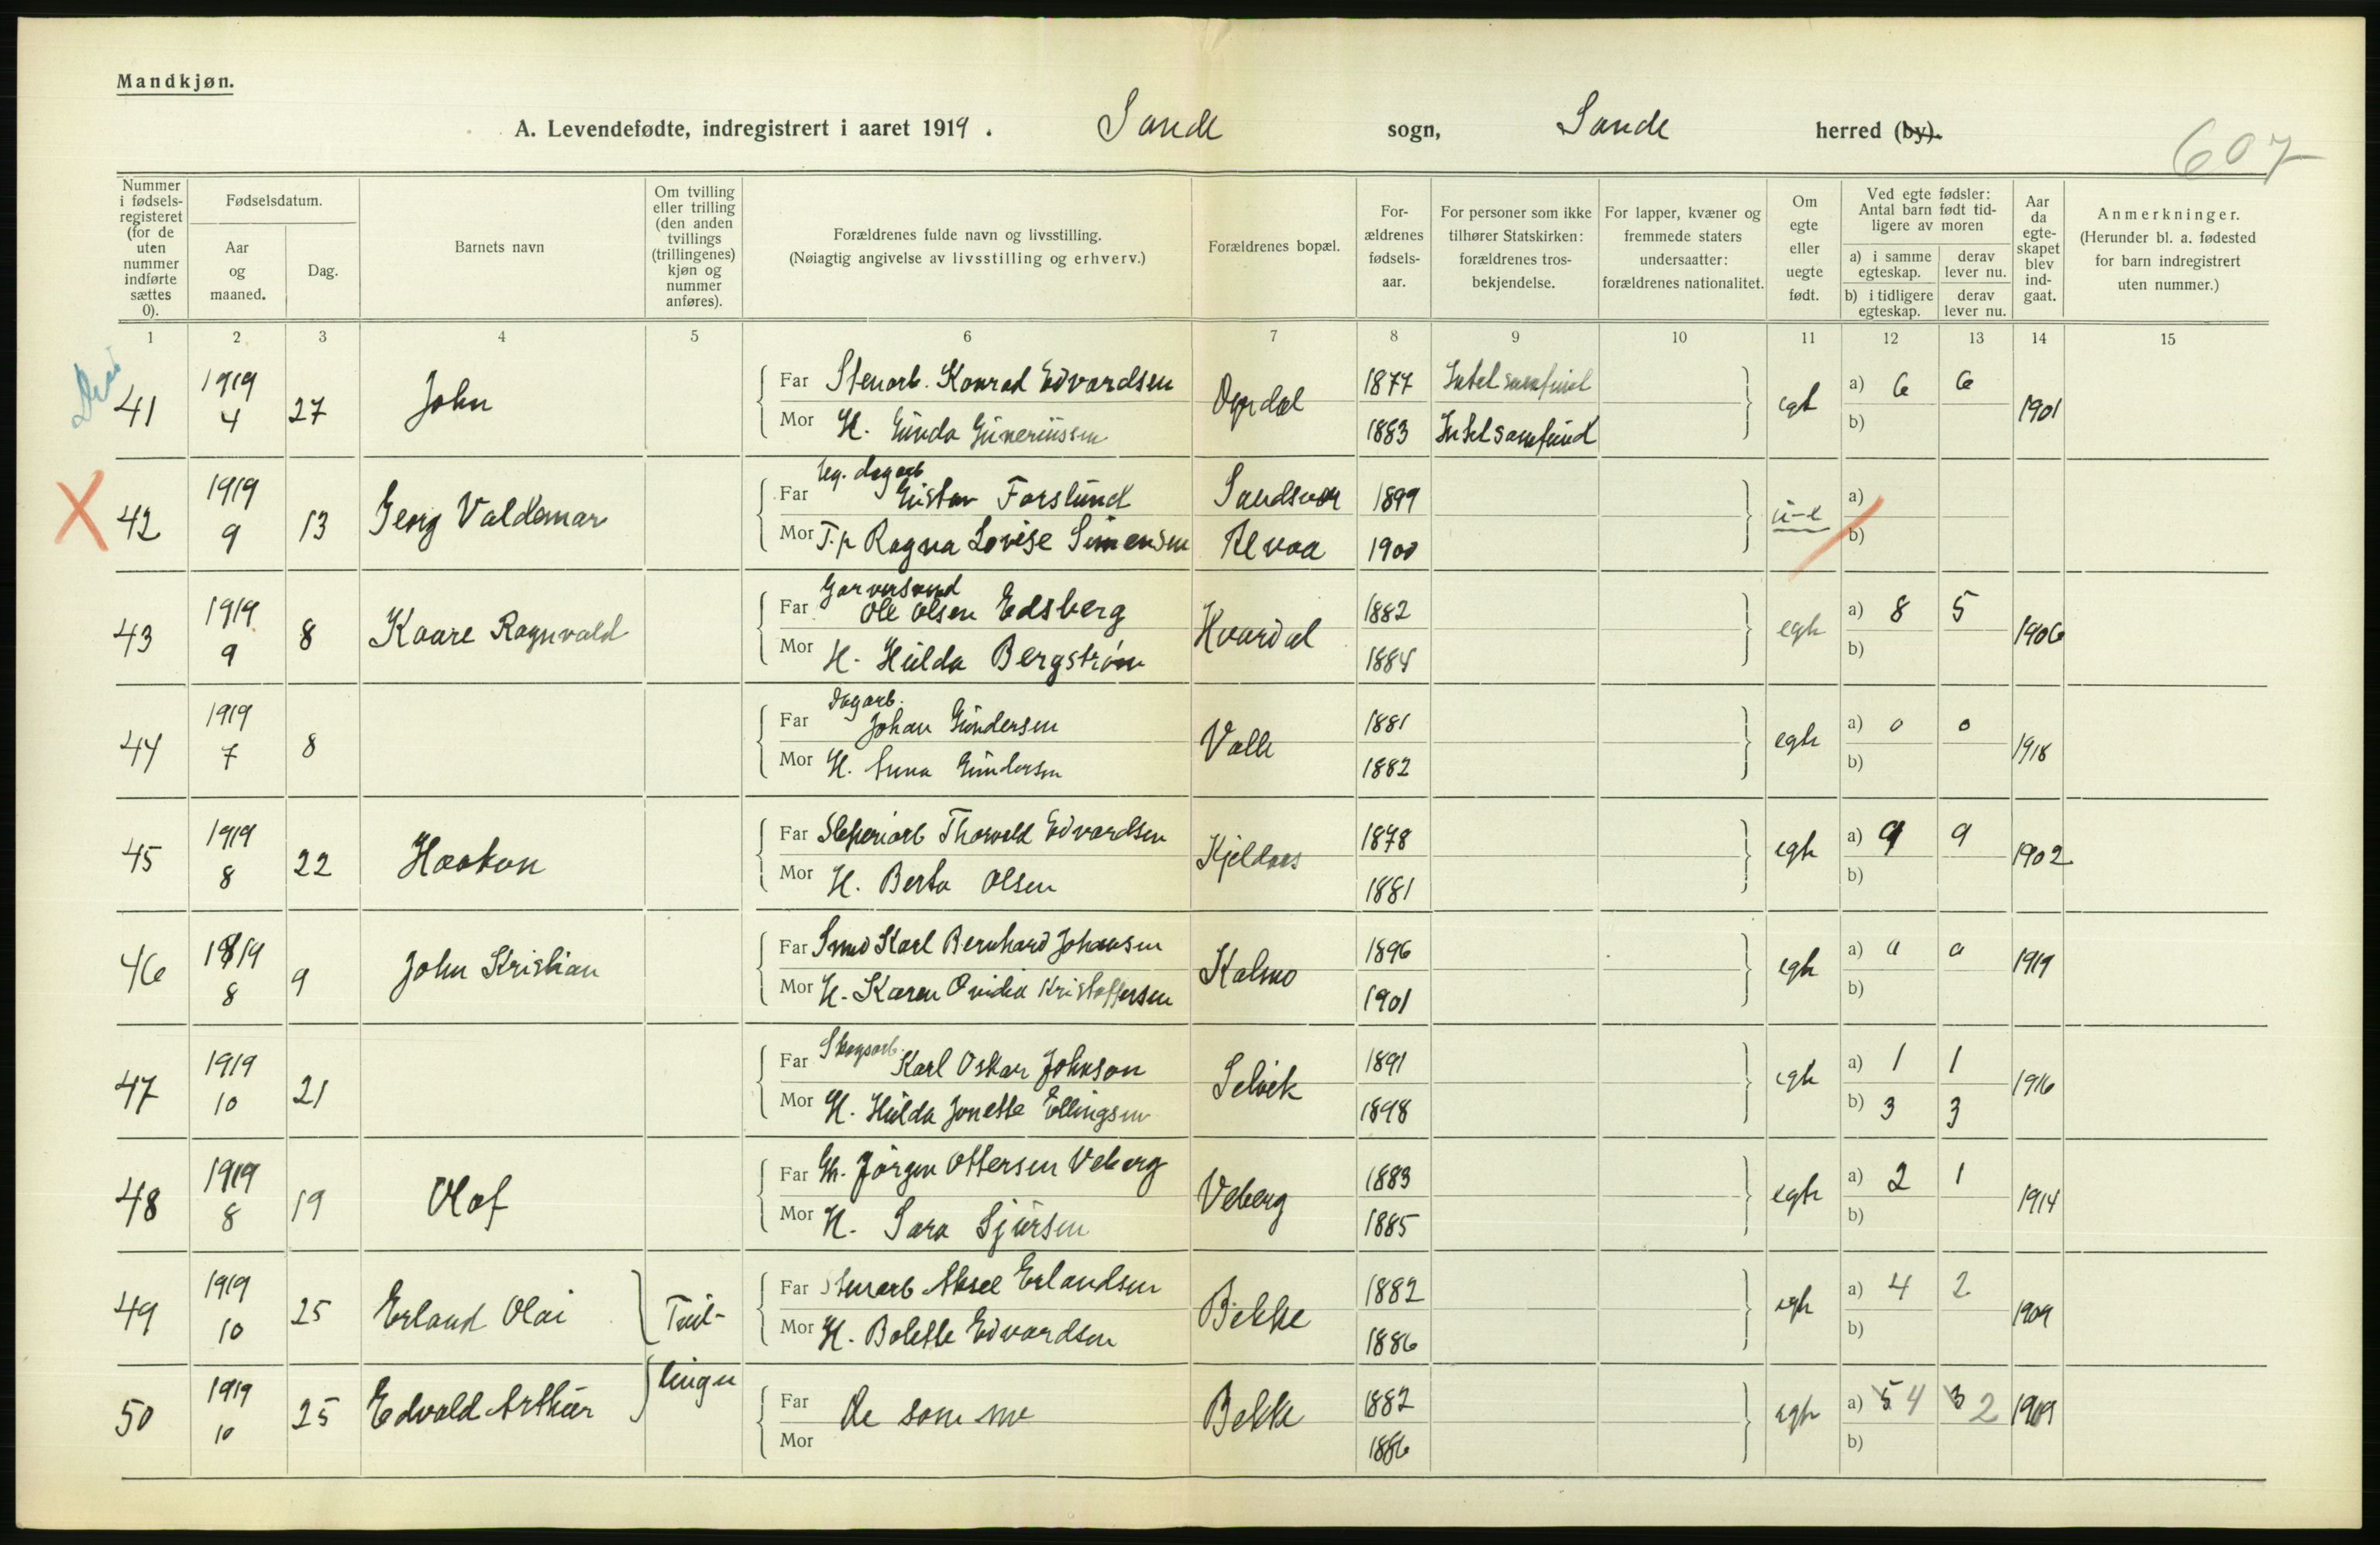 Mandkjøn.
A. Levendefødte, indregistrert i aaret 1919. Sande sogn, Sande herred (by).
607
Nummer i fødsels-registeret (for de uten nummer indførte sættes 0).
Fødselsdatum.
Aar og maaned.
Dag.
Barnets navn
Om tvilling eller trilling (den anden tvillings (trillingenes) kjøn og nummer anføres).
Forældrenes fulde navn og livsstilling.
(Nøiagtig angivelse av livsstilling og erhverv.)
Forældrenes bopæl.
For-ældrenes fødsels-aar.
For personer som ikke tilhører Statskirken: forældrenes tros-bekjendelse.
For lapper, kvæner og fremmede staters undersaatter: forældrenes nationalitet.
Om egte eller uegte født.
Ved egte fødsler: Antal barn født tid-ligere av moren
a) i samme egteskap.
derav lever nu.
b) i tidligere egteskap.
derav lever nu.
Aar da egte-skapet blev ind-gaat.
Anmerkninger.
(Herunder bl. a. fødested for barn indregistrert uten nummer.)
1 2 3 4 5 6 7 8 9 10 11 12 13 14 15
41 1919 4 27 John
Far Stenarb. Konrad Edvardsen 1877
Mor H. Gunda Guneriussen 1883 Intet samfund
egte a) 6 6 b) 1901
42 1919 9 13 Georg Valdemar
Far Ug. dagarb Gustav Forslund Sandsvær 1899
Mor T.p Ragna Lovise Simensen Revaa 1900
u-e a) b)
43 1919 9 8 Kaare Ragnvald
Far Garversvend Ole Olsen Edsberg 1882
Mor H. Hulda Bergstrøm 1884
egte a) 8 5 b) 1906
44 1919 7 8
Far Dagarb. Johan Gundersen Valle 1881
Mor H. Anna Gundersen 1882
egte a) 0 0 b) 1918
45 1919 8 22 Haakon
Far Thorvald Edvardsen Kjeldaas 1878
Mor H. Berta Olsen 1881
egte a) 9 9 b) 1902
46 1919 8 9 John Kristian
Far Smed Karl Bernhard Johansen 1896
Mor H. Karen Ovidia Kristoffersen 1901
egte a) 0 0 b) 1919
47 1919 10 21
Far Skogsarb. Karl Oskar Johnson Selvik 1891
Mor H. Hulda Jonette Ellingsen 1898
egte a) 1 1 b) 3 3 1916
48 1919 8 19 Olaf
Far Gb. Jørgen Ottersen Veberg Veberg 1883
Mor H. Sara Sjursen 1885
egte a) 2 1 b) 1914
49 1919 10 25 Erland Olai Tvil-
Far Stenarb Aksel Erlandsen Bekke 1882
Mor H. Bolette Edvardsen 1886
egte a) 4 2 b) 1909
50 1919 10 25 Edvald Arthur linger
Far De samme Bekke 1882
Mor 1886
egte a) 5 4 3 2 b) 1909